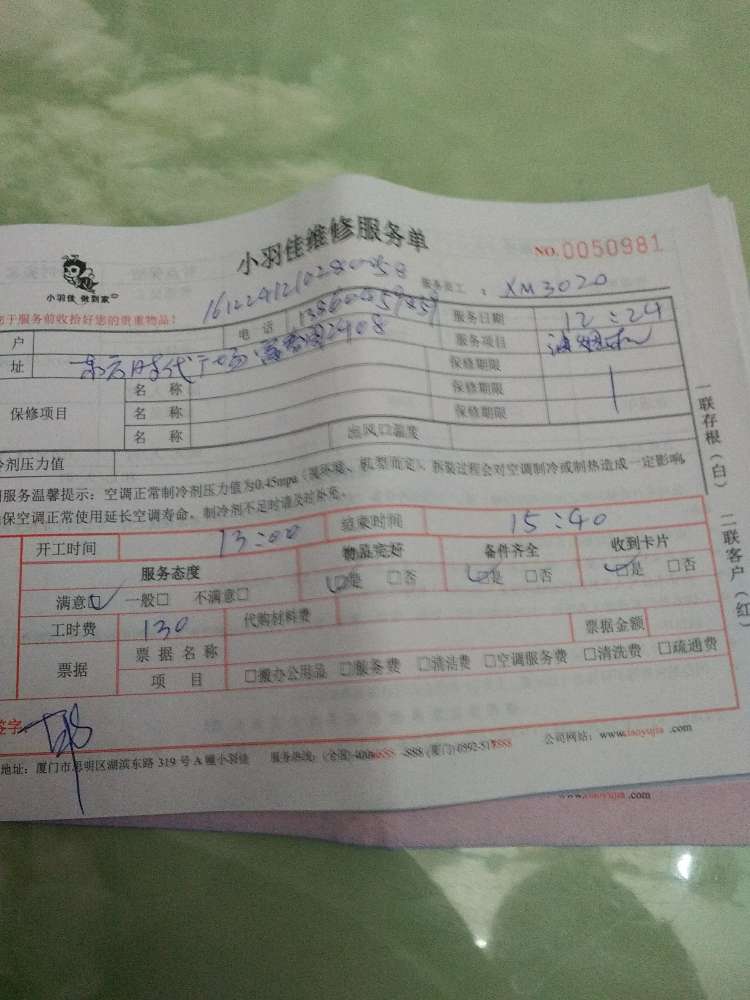 小羽佳维修服务单
NO.0050981
小羽佳 做到家
1612241210280058
服务员工 : XM3020
于服务前收拾好您的贵重物品!
户 电话 服务日期 12:24
址 时代广场 2408 服务项目
保修项目 名称 保修期限
名称 保修期限
名称 保修期限
剂压力值 出风口温度
服务温馨提示:空调正常制冷剂压力值为0.45mpa(视环境、机型而定)、拆装过程会对空调制冷或制热造成一定影响,
保空调正常使用延长空调寿命,制冷剂不足时请及时补充。
开工时间 13:00 结束时间 15:40
服务态度 物品完好 备件齐全 收到卡片
满意□ 一般□ 不满意□ □是 □否 □是 □否 □是 □否
工时费 130 代购材料费 票据金额
票据 票据名称
项目 □搬办公用品 □服务费 □清洁费 □空调服务费 □清洗费 □疏通费
签字
地址:厦门市思明区湖滨东路 319 号 A 幢小羽佳 服务热线:(全国) -888 (厦门) 0592-5 公司网站:www.xiaoyujia .com
www.xiaoyujia .com
一联存根(白)
二联客户(红)